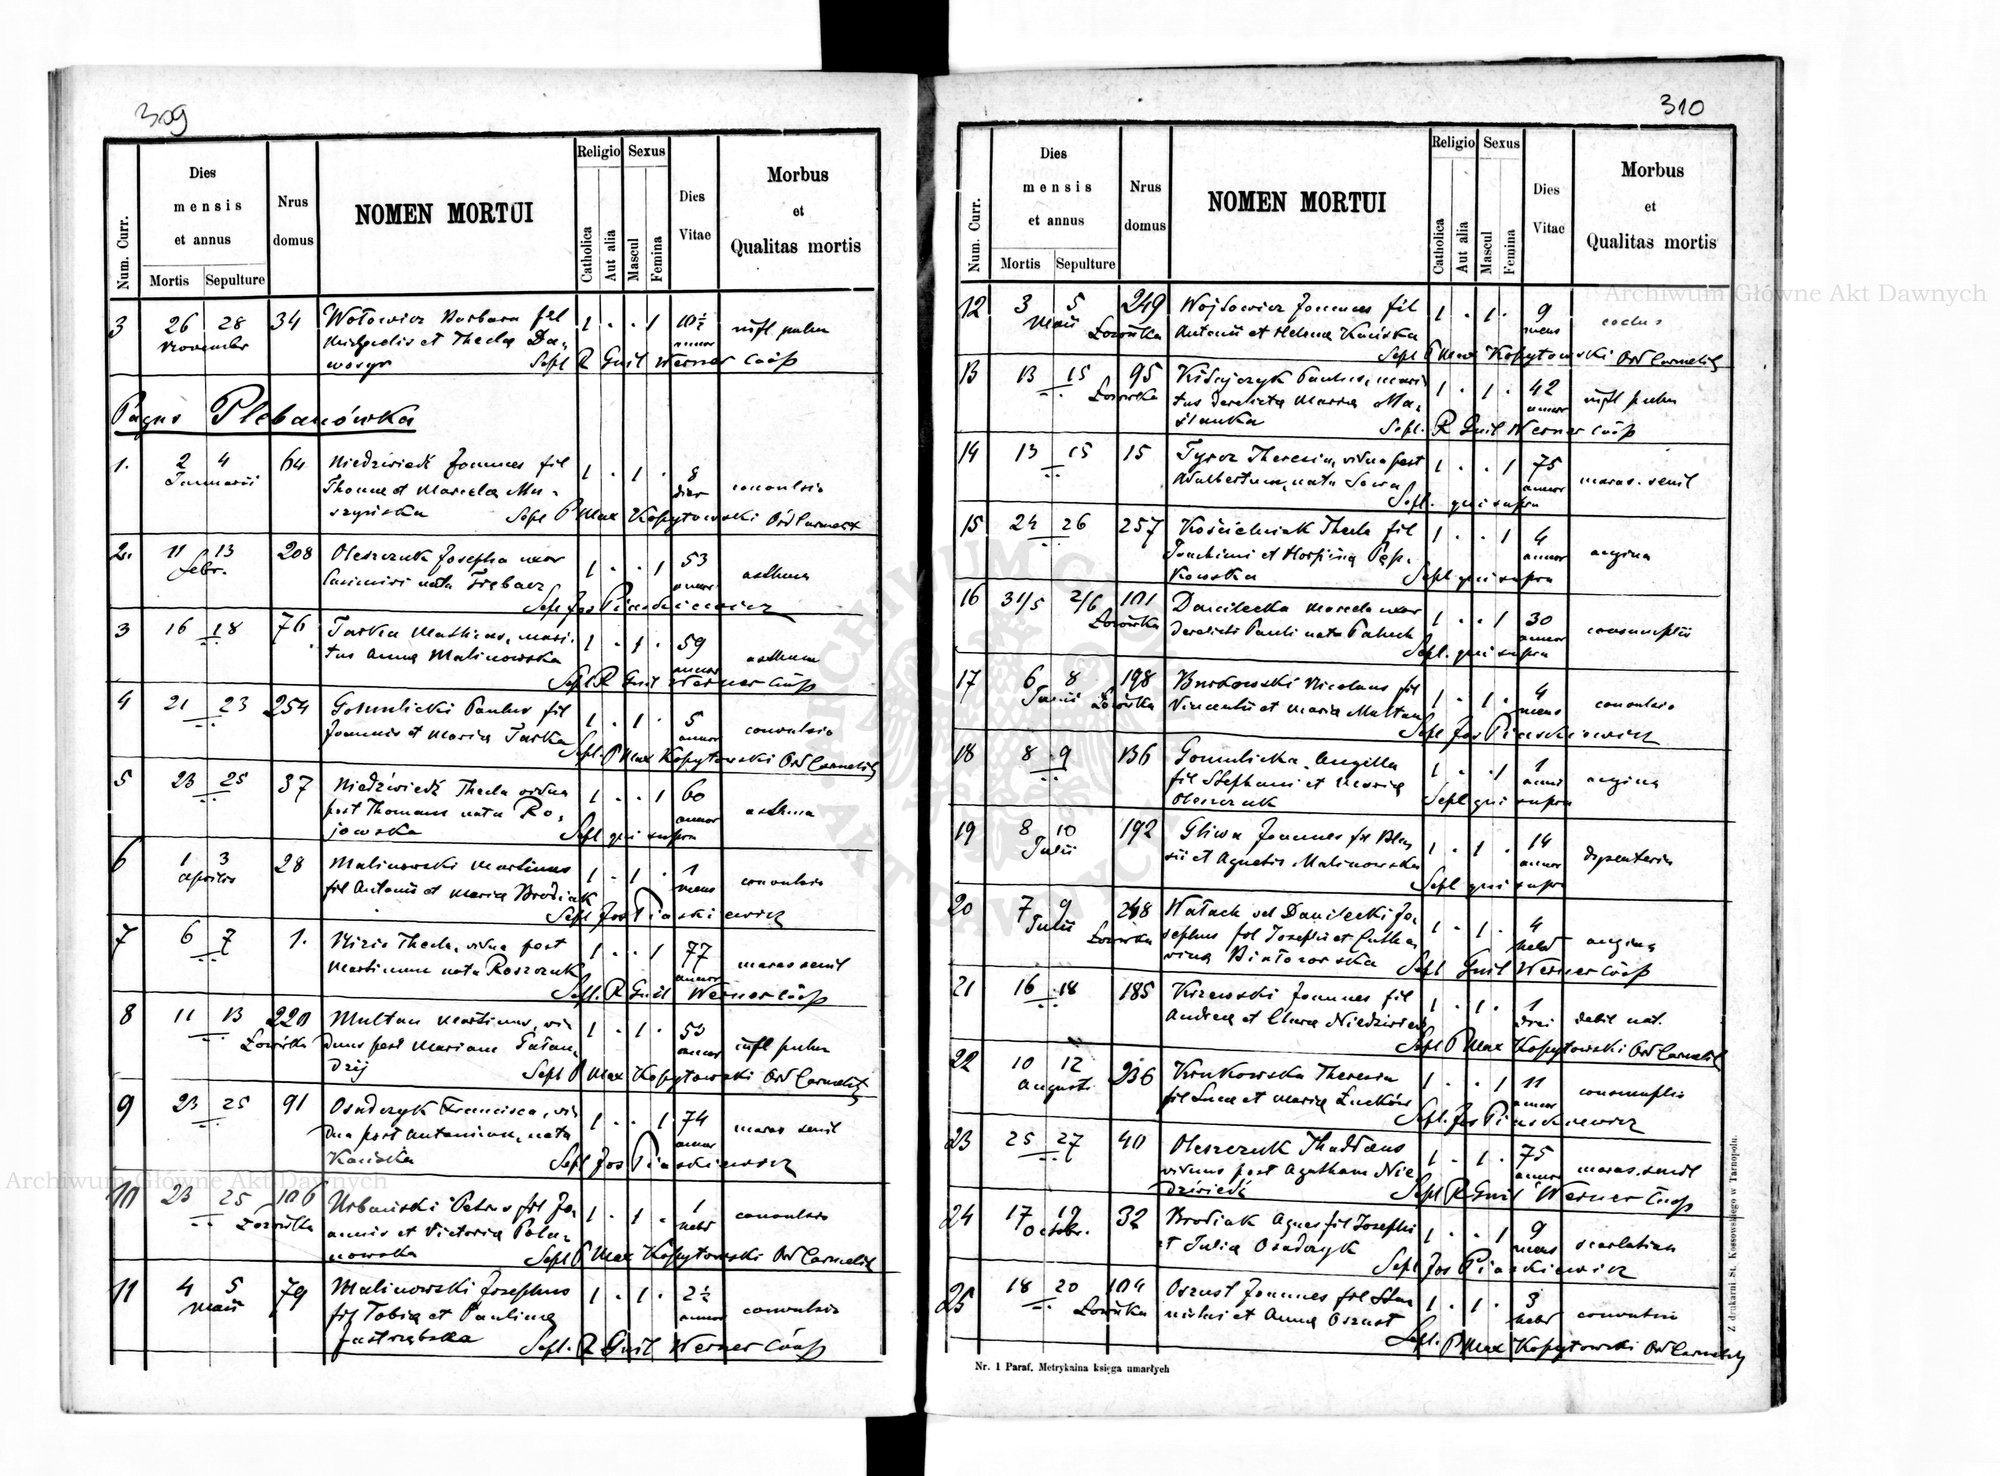 309
Num. Curr.
Dies
mensis
et annus
Mortis
Sepulture
Nrus
domus
NOMEN MORTUI
Religio
Catholica
Aut alia
Sexus
Mascul
Femina
Dies
Vitae
Morbus
et
Qualitas mortis
3 26 28 34 Wołowicz Barbara fil 1 . . 1 10½ infl pulm
Novembr Michaelis et Thecla annor
Sepl R Guil Werner Coop
Pagus Plebanówka
1. 2 4 64 Niedźwiedź Joannes fil 1 . 1 . 8 convulsio
Januarii Thomae et Marcela dier
Sepl P Max Kopytowski Ord Carmelit
2. 11 13 208 Oleszczuk Josepha uxor 1 . . 1 53 asthma
Febr. Casimiri nata Trębacz annor
Sepl Jos Piaskiewicz
3 16 18 76 Tarka Mathias, mari- 1 . 1 . 59 asthma
tus Anna Malinowska annor
Sepl R Guil Werner Coop
4 21 23 254 Gomulicki Paulus fil 1 . 1 . 5 convulsio
Joannis et Maria Tarka annor
Sepl. P Max Kopytowski Ord Carmelit
5 23 25 37 Niedźwiedź Thecla vidua 1 . . 1 60 asthma
post Thomam nata Ro- annor
jowska Sepl qui supra
6 1 3 28 Malinowski Martinus 1 . 1 . 1 convulsio
Aprilis fil Antonii et Maria Brodiak mens
Sepl Jos Piaskiewicz
7 6 7 1. Thecla, vidua post 1 . . 1 77 maras senil
Martinum nata Roszczuk annor
Sepl. R Guil Werner Coop
8 11 13 220 Multan Martinus, vi- 1 . 1 . 53 infl pulm
Łozówka duus post Mariam annor
Sepl P Max Kopytowski Ord Carmelit
9 23 25 91 Osadczyk Francisca, vi- 1 . . 1 74 maras senil
dua post Antonium, nata annor
Kańska Sepl Jos Piaskiewicz
10 23 25 106 Urbański Petrus fil Jo- 1 . 1 . 1 convulsio
Łozówka annis et Victoria Pola- hebd
nowska Sepl P Max Kopytowski Ord Carmelit
11 4 5 79 Malinowski Josephus 1 . 1 . 2½ convulsio
Maii fil Tobia et Paulina annor
Jastrzębska Sepl. R Guil Werner Coop
310
Num. Curr.
Dies
mensis
et annus
Mortis
Sepulture
Nrus
domus
NOMEN MORTUI
Religio
Catholica
Aut alia
Sexus
Mascul
Femina
Dies
Vitae
Morbus
et
Qualitas mortis
12 3 5 249 Wojtowicz Joannes fil 1 . 1 . 9
Maii Łozówka Antonii et Helena Kańska mens
Sepl P Max Kopytowski Ord Carmelit
13 13 15 95 Paulus, mari- 1 . 1 . 42 infl pulm
Łozówka tus derelicta Maria Ma- annor
ślanka Sepl. R Guil Werner Coop
14 13 15 15 Theresia, vidua post 1 . . 1 75 maras. senil
Adalbertum, nata Sowa annor
Sepl. qui supra
15 24 26 257 Kościelniak Thecla fil 1 . . 1 4 angina
Joachimi et annor
kowska Sepl qui supra
16 31/5 2/6 101 Danilecka Marcela uxor 1 . . 1 30 consumptio
Łozówka derelicti Pauli nata annor
Sepl. qui supra
17 6 8 198 Burkowski Nicolaus fil 1 . 1 . 4 convulsio
Junii Łozówka Vincentii et Maria Multan mens
Sepl Jos Piaskiewicz
18 8 9 136 Gomulicka Angilla 1 . . 1 1 angina
fil Stephani et Maria anni
Oleszczuk Sepl qui supra
19 8 10 192 Gliwa Joannes fil Bla- 1 . 1 . 14 dysenteria
Julii sii et Agnetis Malinowska annor
Sepl qui supra
20 7 9 Wałach vel Danilecki Jo- 1 . 1 . 4 angina
Julii Łozówka sephus fil Josephi et Catha- hebd
rina Białozorska Sepl Guil Werner Coop
21 16 18 185 Joannes fil 1 . 1 . 1 debil nat.
Andrea et Clara Niedźwiedź diei
Sepl P Max Kopytowski Ord Carmelit
22 10 12 236 Krukowska Theresia 1 . . 1 11 consumptio
Augusti fil Luca et Maria annor
Sepl. Jos Piaskiewicz
23 25 27 40 Oleszczuk Thaddaeus 1 . 1 . 75 maras. senil
viduus post Agatham Nie- annor
dźwiedź Sepl R Guil Werner Coop
24 17 19 32 Brodiak Agnes fil Josephi 1 . . 1 9 scarlatina
Octobr. et Julia Osadczyk mens
Sepl Jos Piaskiewicz
25 18 20 104 Oszust Joannes fil Sta- 1 . 1 . 3 convulsio
Łozówka nislai et Anna Oszust hebd
Sepl. P Max Kopytowski Ord Carmelit
Nr. 1 Paraf. Metrykalna księga umarłych
Z drukarni St. Kossowskiego w Tarnopolu.
Archiwum Główne Akt Dawnych
Archiwum Główne Akt Dawnych
ARCHIWUM GŁÓWNE AKT DAWNYCH